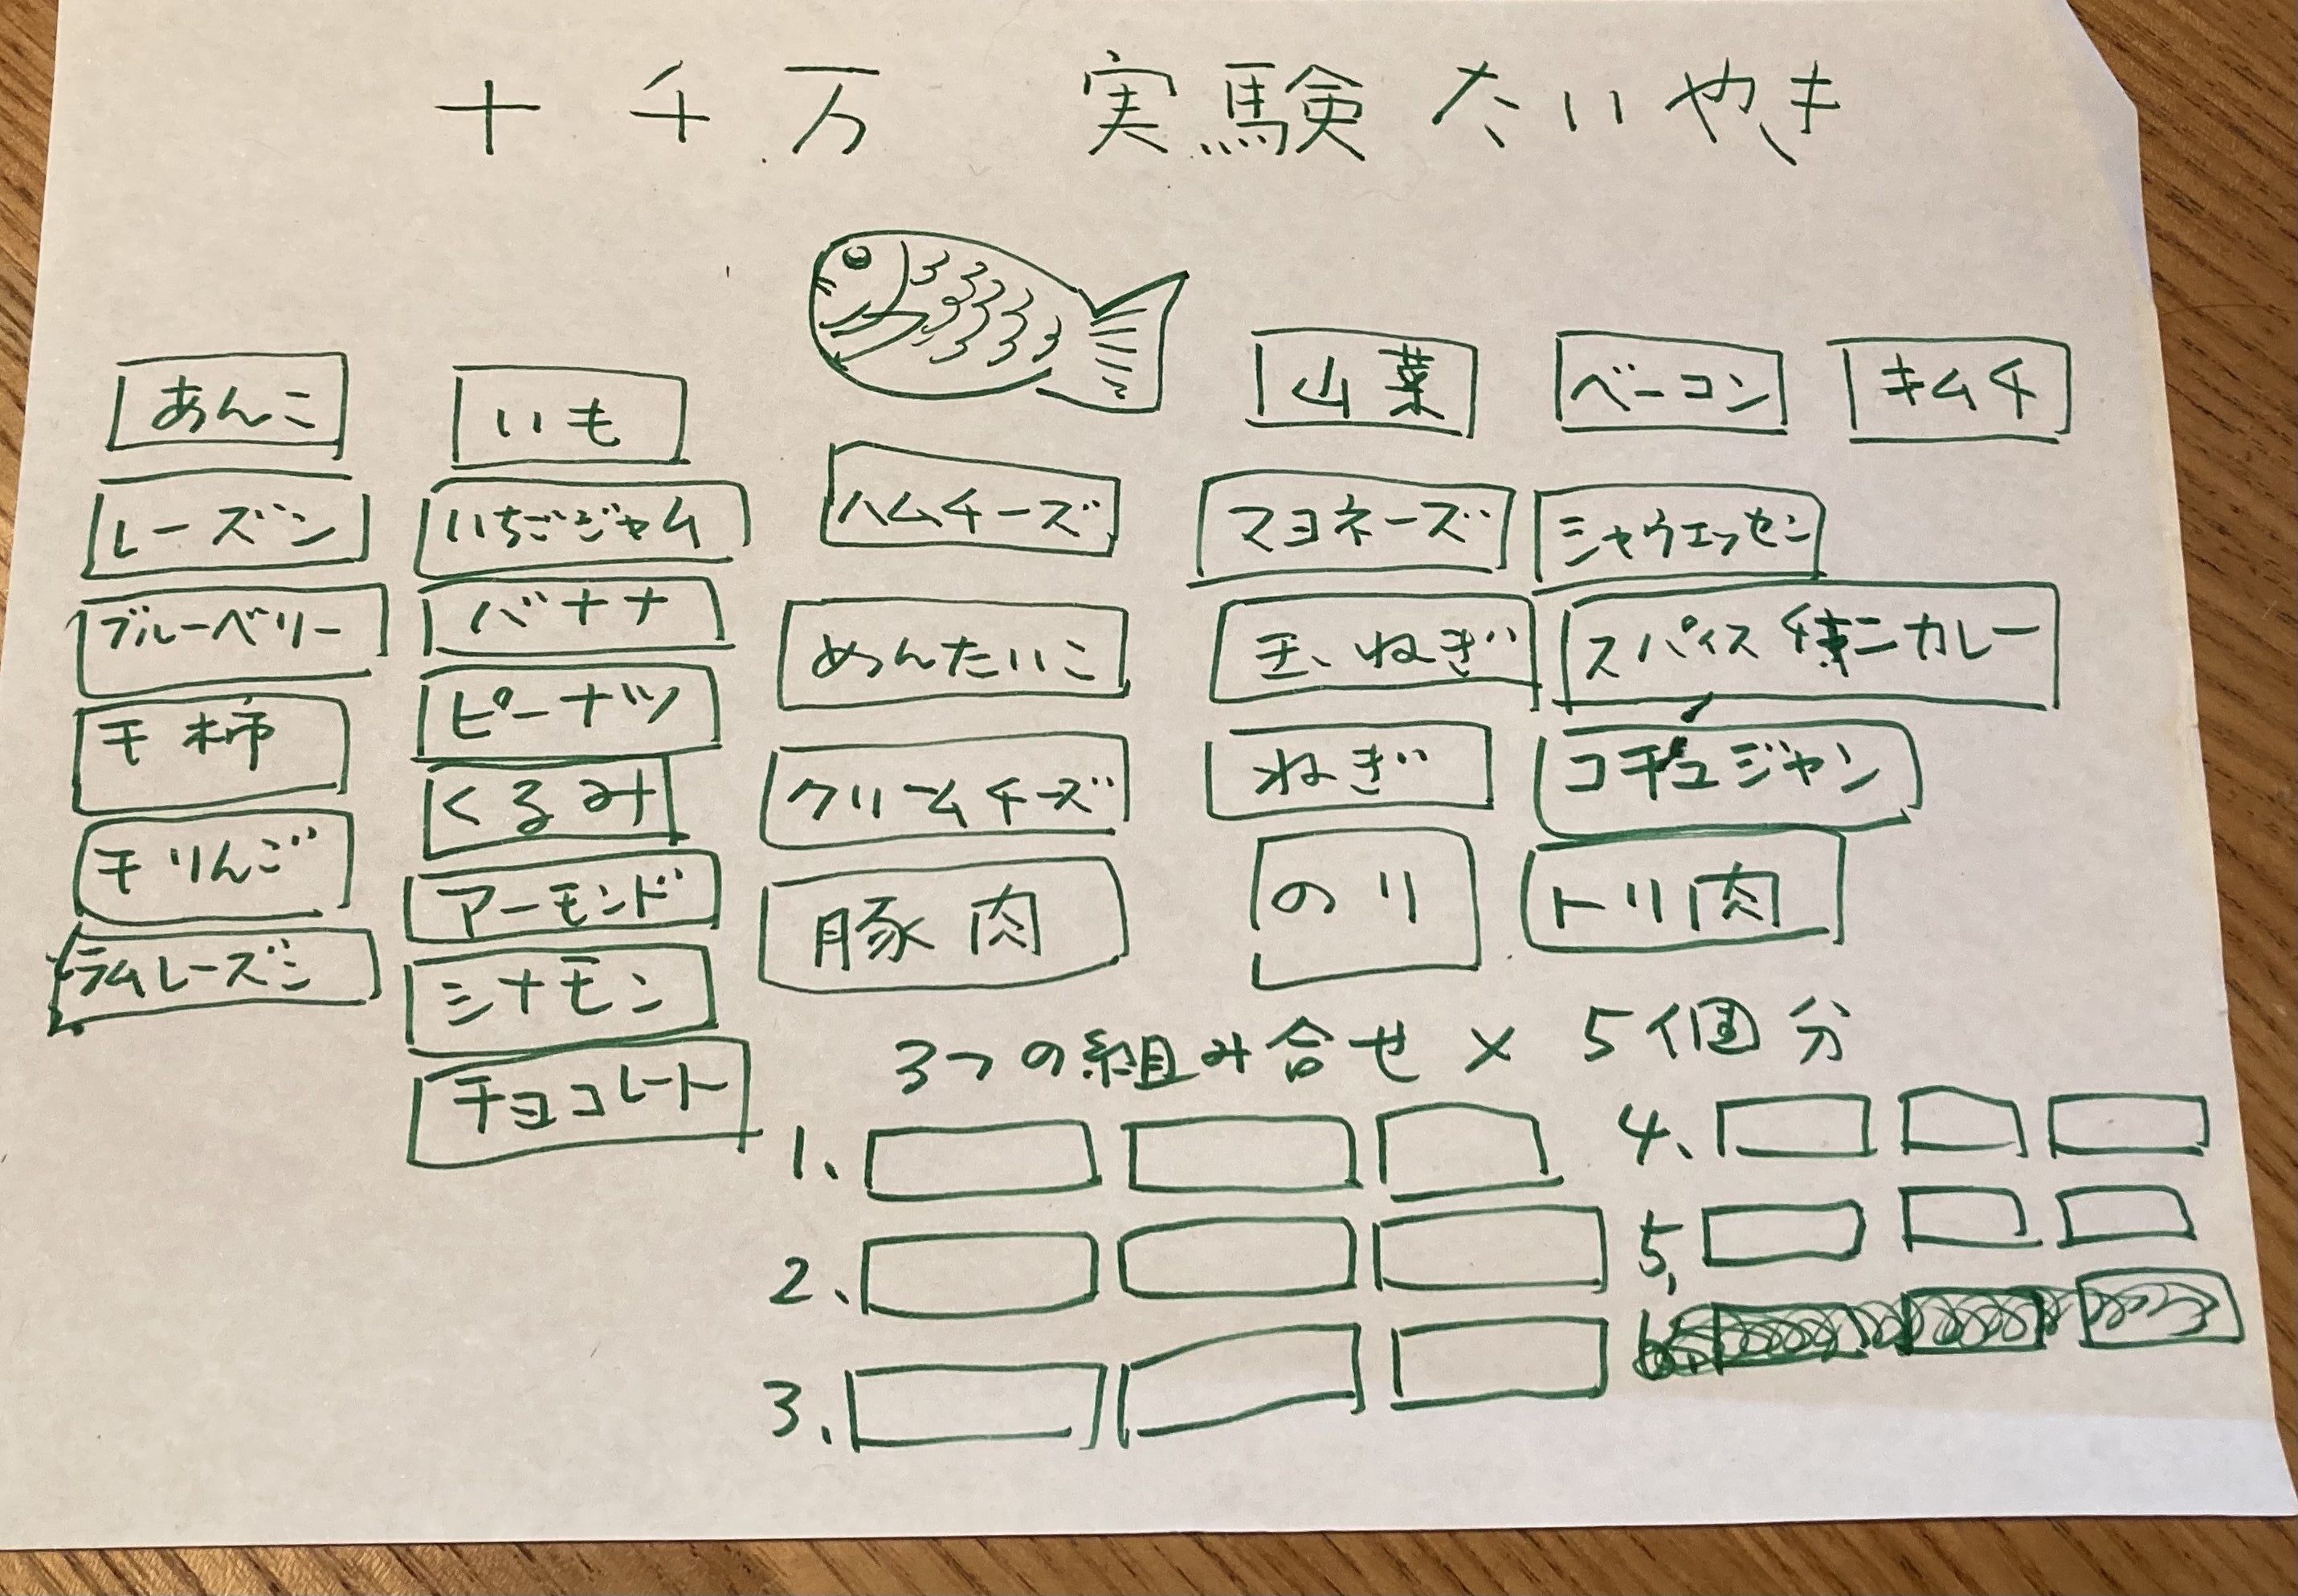 十千万 実験たいやき
あんこ
レーズン
ブルーベリー
干柿
干りんご
ラムレーズン
いも
いちごジャム
バナナ
ピーナツ
くるみ
アーモンド
シナモン
チョコレート
ハムチーズ
めんたいこ
クリームチーズ
豚肉
山菜
マヨネーズ
玉ねぎ
ねぎ
のり
ベーコン
キムチ
シャウエッセン
スパイス カレー
コチュジャン
トリ肉
3つの組み合せ × 5個分
1、
2、
3、
4、
5、